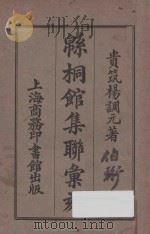 貴筑楊調元著
緜桐館集聯彙
上海商務印書館出版